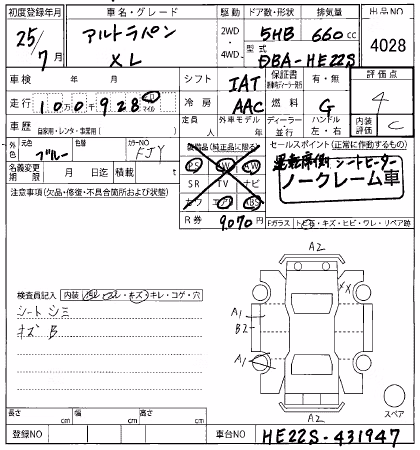 初度登録年月 車名・グレード 駆動 ドア数・形状 排気量 出品NO
25/7月 アルトラパン XL 2WD・4WD 5HB 660cc 4028
型式 DBA-HE22S
車検 年 月 シフト IAT 保証書 有・無 評価点
走行 10万0千928 キロ マイル 冷房 AAC 燃料 G 4
車歴 自家用・レンタ・事業用( ) 定員 人 外車モデル 年 ディーラー 並行 ハンドル 左・右 内装 C
外色 元色 ブルー 色替 カラーNO FJY 装備品(純正品に限る) セールスポイント(正常に作動するもの)
名義変更期限 月 日迄 積載 t PS AW PW 運転席側シートヒーター
注意事項(欠品・修復・不具合箇所および状態) SR TV ナビ ノークレーム車
カワ エアB ABS
R券 9,070円 Fガラス トビ・キズ・ヒビ・ワレ・リペア跡
A2
XX
検査員記入 内装 ・キズ・キレ・コゲ・穴
シートシミ A1
キズ B B2
A1
A2
スペア
長さ cm 幅 cm 高さ cm
登録NO 車台NO HE22S-431947